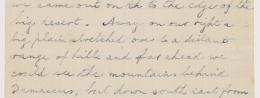 we came out on th to the edge of the
big desert. Away on our right a
big plain stretched over to a distant
range of hills and far ahead we
could see the mountains behind
Damascus, but down south east from